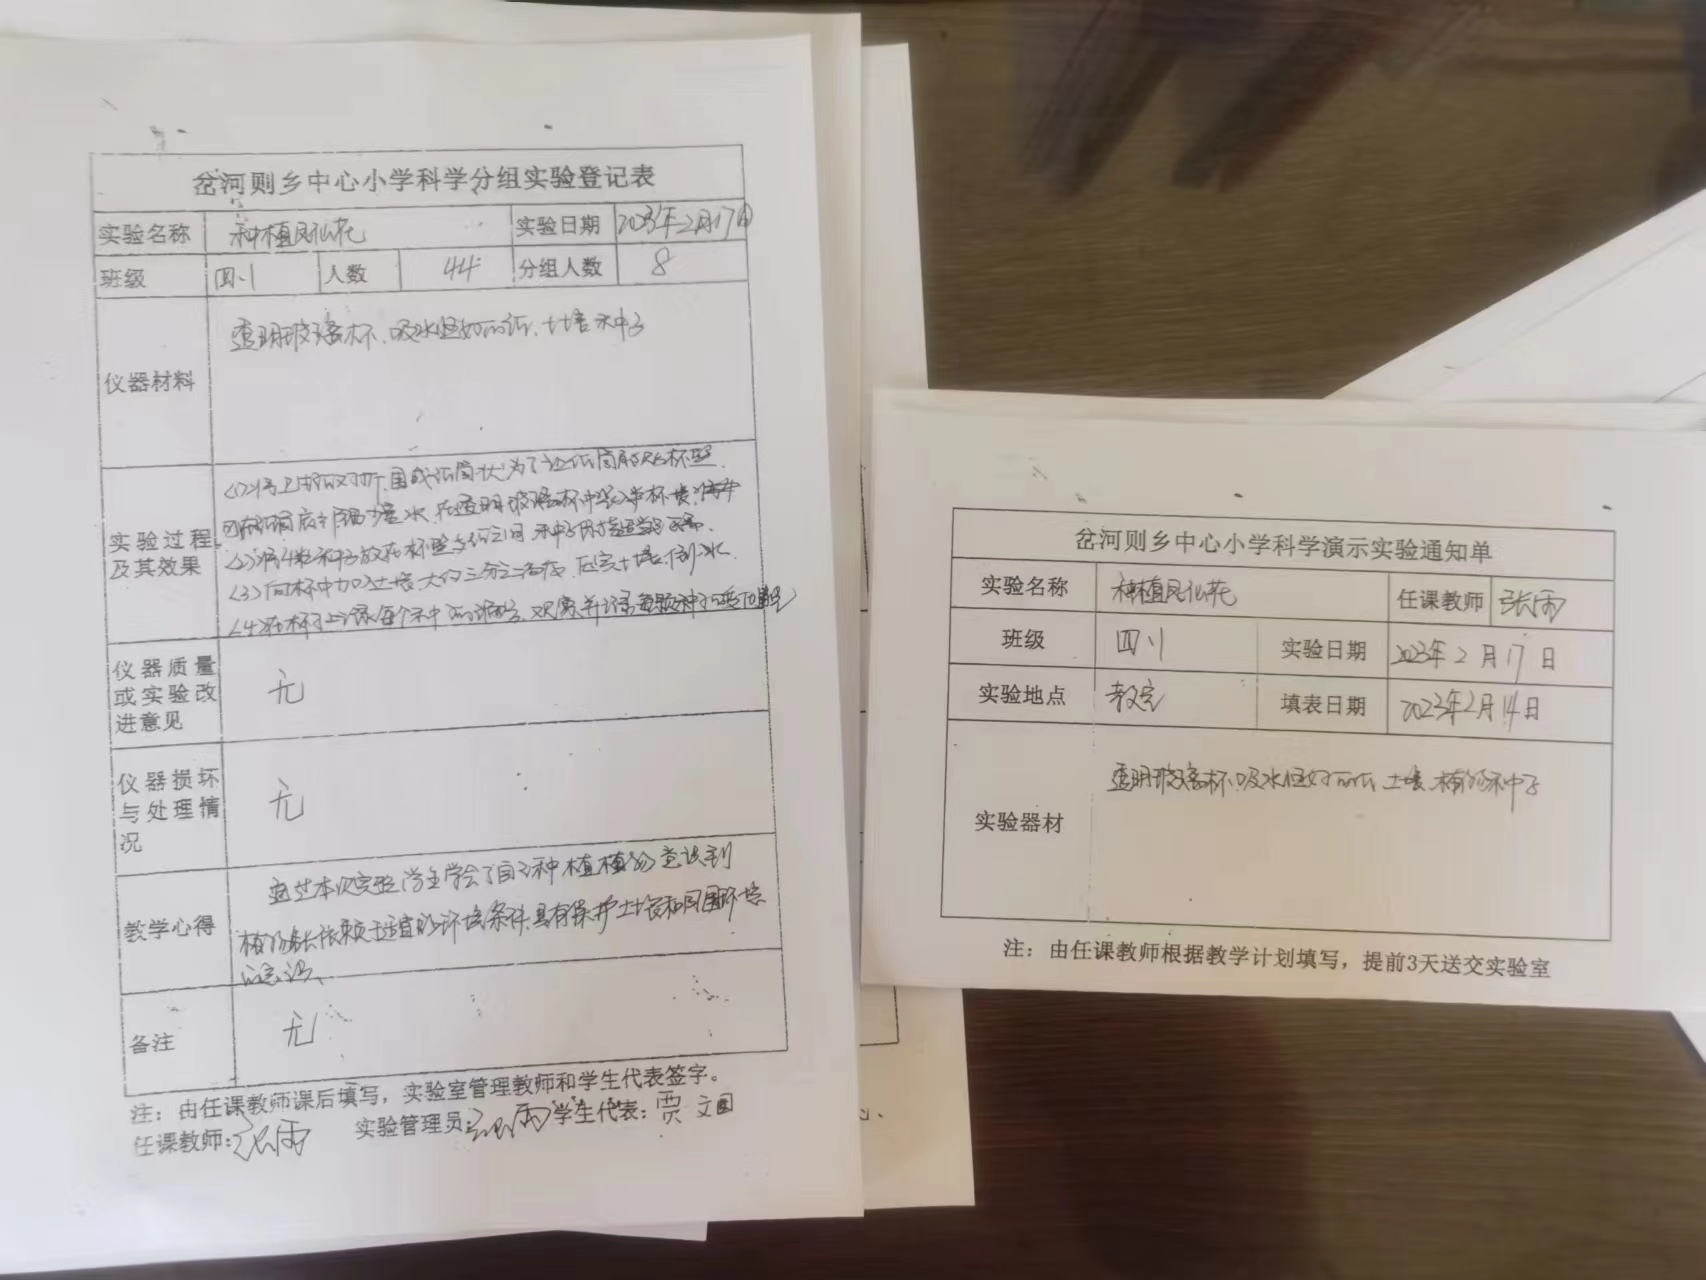 岔河则乡中心小学科学分组实验登记表
实验名称 种植凤仙花 实验日期 2023年2月17日
班级 四.1 人数 44 分组人数 8
仪器材料 透明玻璃杯、吸水性好的纸、土壤 种子
实验过程及其效果
围成纸筒状 为了让纸筒 杯壁
在透明玻璃杯中
(2)将4粒种子放在杯壁与纸之间
(3)向杯中加土壤 大约三分之二
(4)在杯子上 观察并记录每颗种子的变化
仪器质量或实验改进意见 无
仪器损坏与处理情况 无
教学心得 通过本次实验学生学会了自己种植植物 意识到
植物生长依赖 适宜的环境条件,具有保护土壤和周围环境
的意识
备注 无
注：由任课教师课后填写，实验室管理教师和学生代表签字。
任课教师:张雨 实验管理员:张雨 学生代表:贾文国
岔河则乡中心小学科学演示实验通知单
实验名称 种植凤仙花 任课教师 张雨
班级 四.1 实验日期 2023年2月17日
实验地点 教室 填表日期 2023年2月14日
实验器材 透明玻璃杯、吸水性好的纸 土壤、植物种子
注：由任课教师根据教学计划填写，提前3天送交实验室